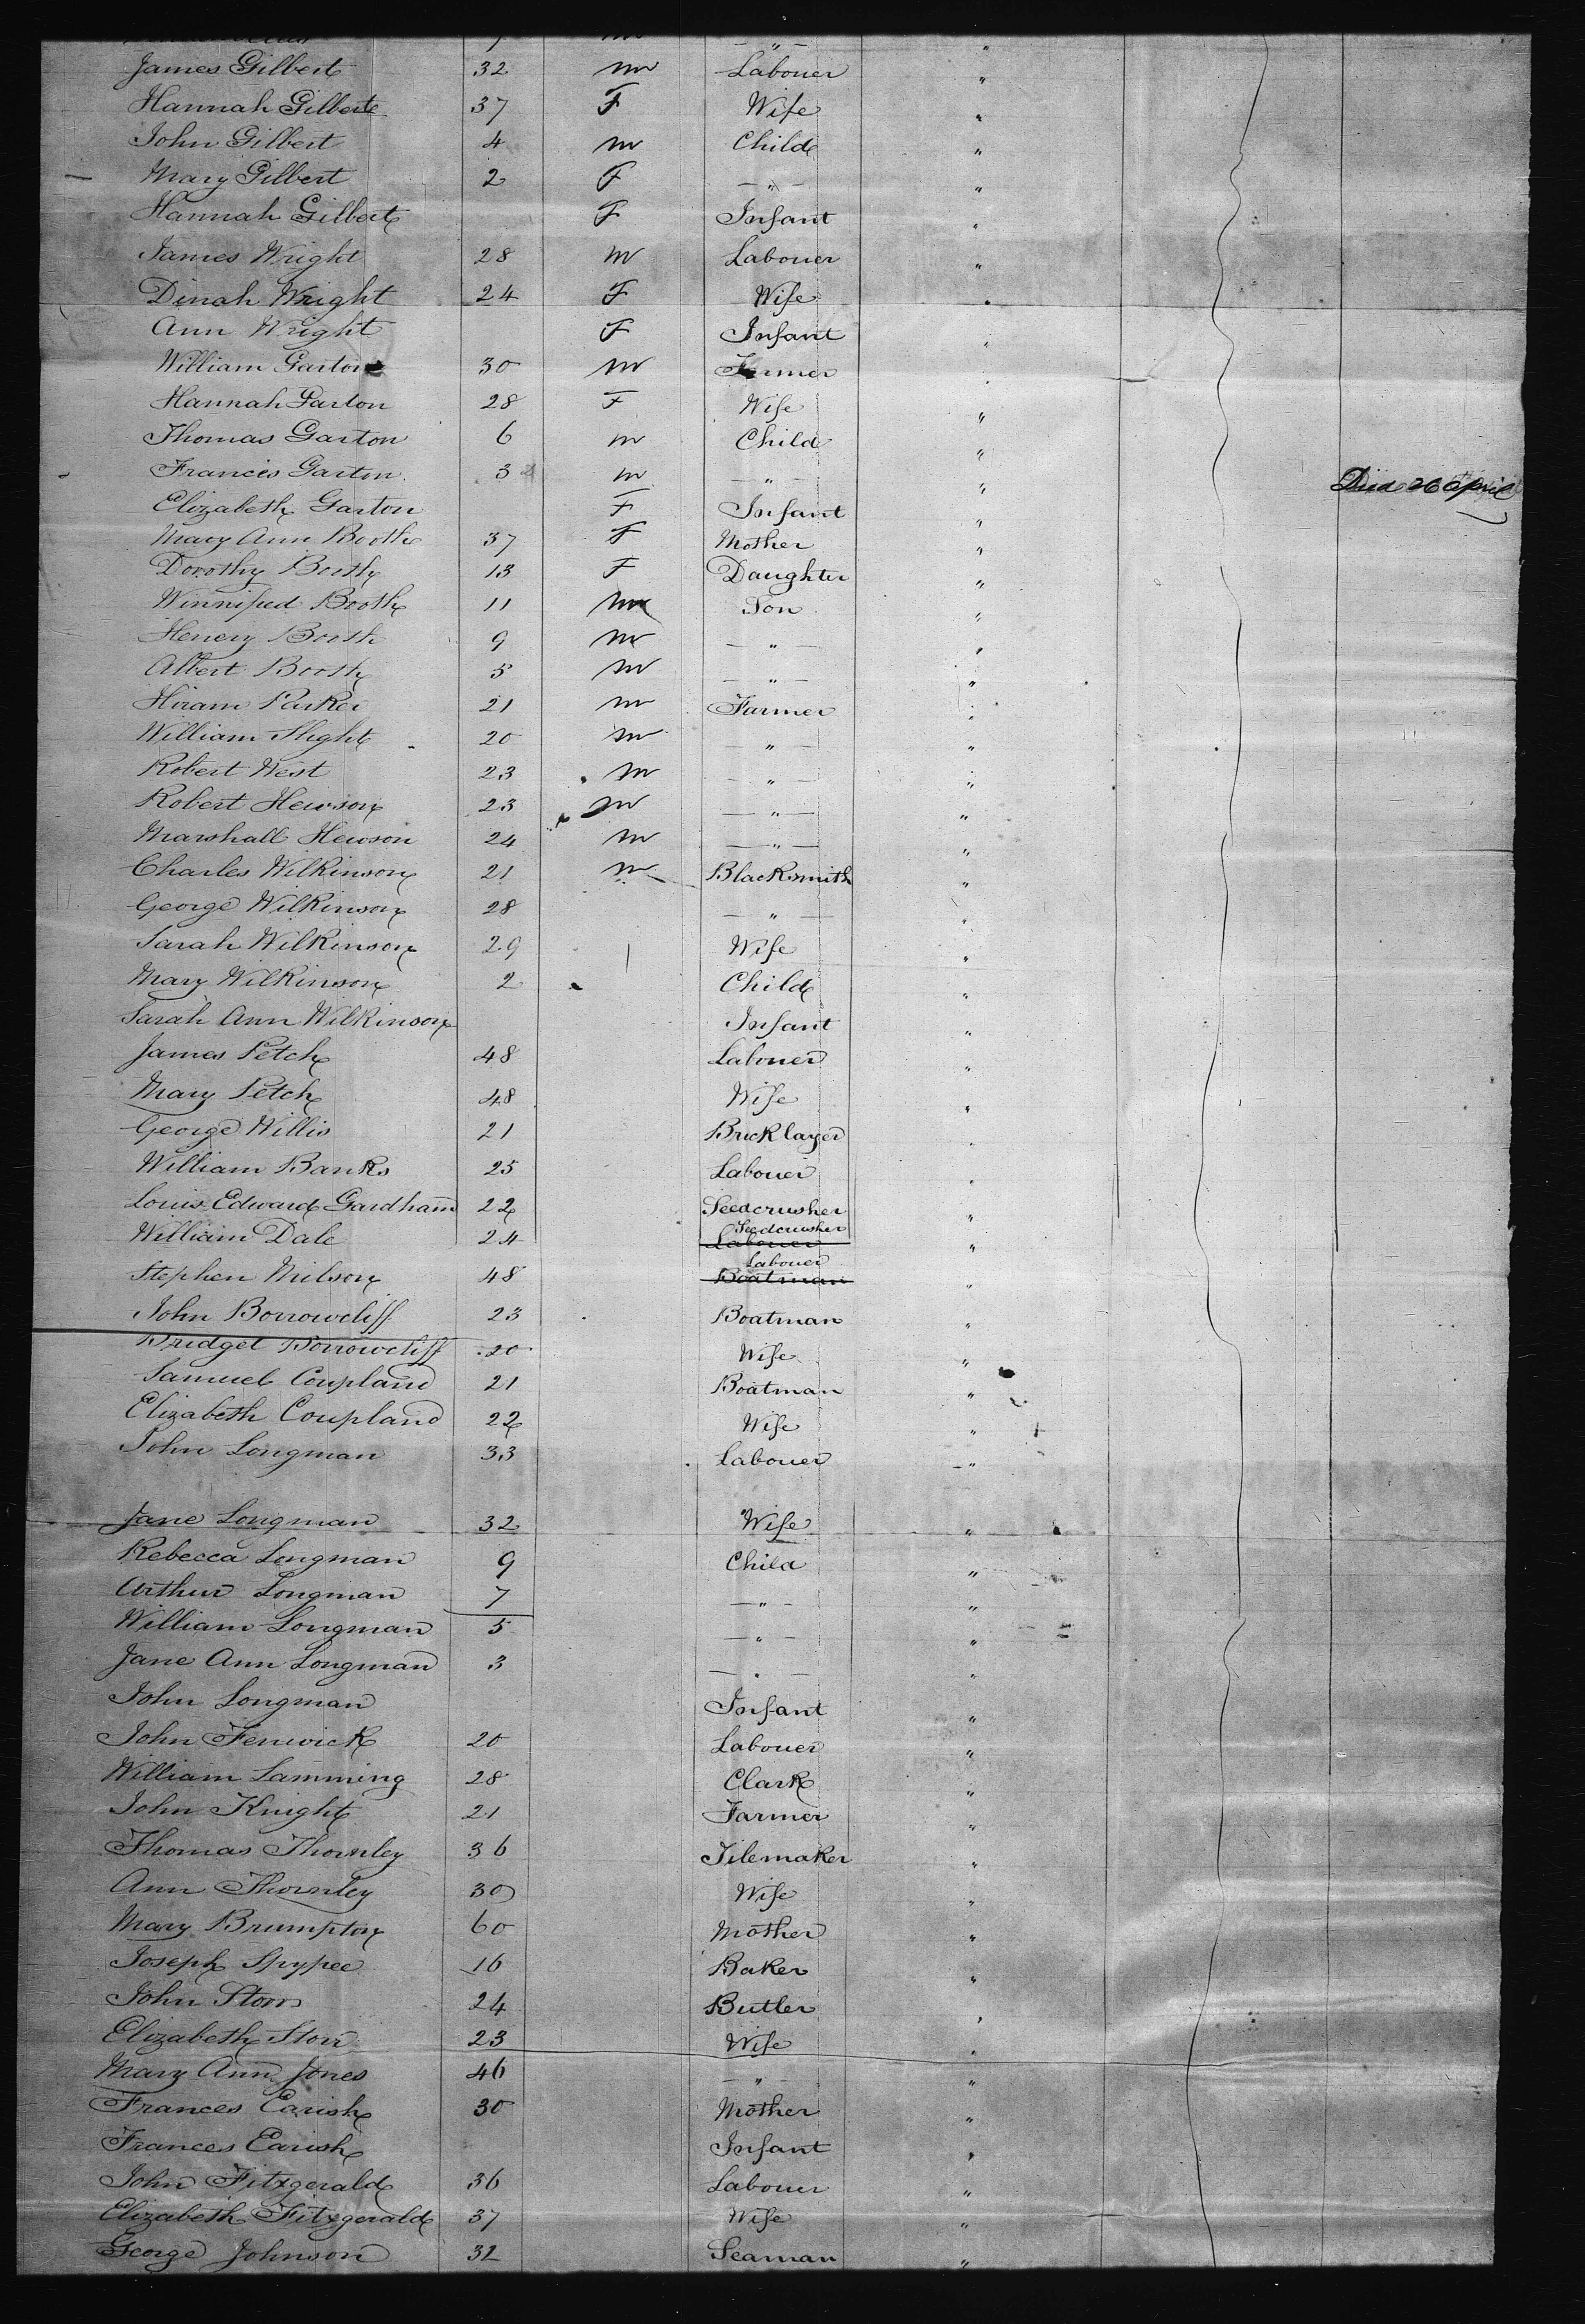 James Gilbert 32 m Labouer "
Hannah Gilbert 37 F Wife "
John Gilbert 4 m Child "
Mary Gilbert 2 F — " — "
Hannah Gilbert F Infant "
James Wright 28 m Labouer "
Dinah Wright 24 F Wife "
Ann Wright F Infant "
William Garton 30 m Farmer
Hannah Garton 28 F Wife "
Thomas Garton 6 m Child "
Francis Garton 3 m — " — " Died 26 April
Elizabeth Garton F Infant "
Mary Ann Booth 37 F Mother "
Dorothy Booth 13 F Daughter "
Winnifred Booth 11 m Son "
Henery Booth 9 m — " — "
Albert Booth 5 m — " — "
Hiram Parker 21 m Farmer "
William Slight 20 m — " — "
Robert West 23 m — " — "
Robert Hewson 23 m — " — "
Marshall Hewson 24 m — " — "
Charles Wilkinson 21 m Blacksmith "
George Wilkinson 28 — " — "
Sarah Wilkinson 29 Wife "
Mary Wilkinson 2 Child "
Sarah Ann Wilkinson Infant "
James Petch 48 Labouer "
Mary Petch 48 Wife "
George Willis 21 Bricklayer "
William Banks 25 Labouer "
Louis Edward Gardham 22 Seedcrusher "
Seedcrusher
William Dale 24 Labouer "
Labouer
Stephen Milson 48 Boatman "
John Borrowcliff 23 Boatman "
Bridget Borrowcliff 20 Wife "
Samuel Coupland 21 Boatman "
Elizabeth Coupland 22 Wife "
John Longman 33 Labouer "
Jane Longman 32 Wife "
Rebecca Longman 9 Child "
Arthur Longman 7 — " — "
William Longman 5 — " — "
Jane Ann Longman 3 — " — "
John Longman Infant "
John Fenwick 20 Labouer "
William Lamming 28 Clark "
John Knight 21 Farmer "
Thomas Thornley 36 Tilemaker "
Ann Thornley 30 Wife "
Mary Brumpton 60 Mother "
Joseph 16 Baker "
John Storr 24 Butler "
Elizabeth Storr 23 Wife "
Mary Ann Jones 46 — " — "
Frances Earish 30 Mother "
Frances Earish Infant "
John Fitzgerald 36 Labouer "
Elizabeth Fitzgerald 37 Wife "
George Johnson 32 Seaman "